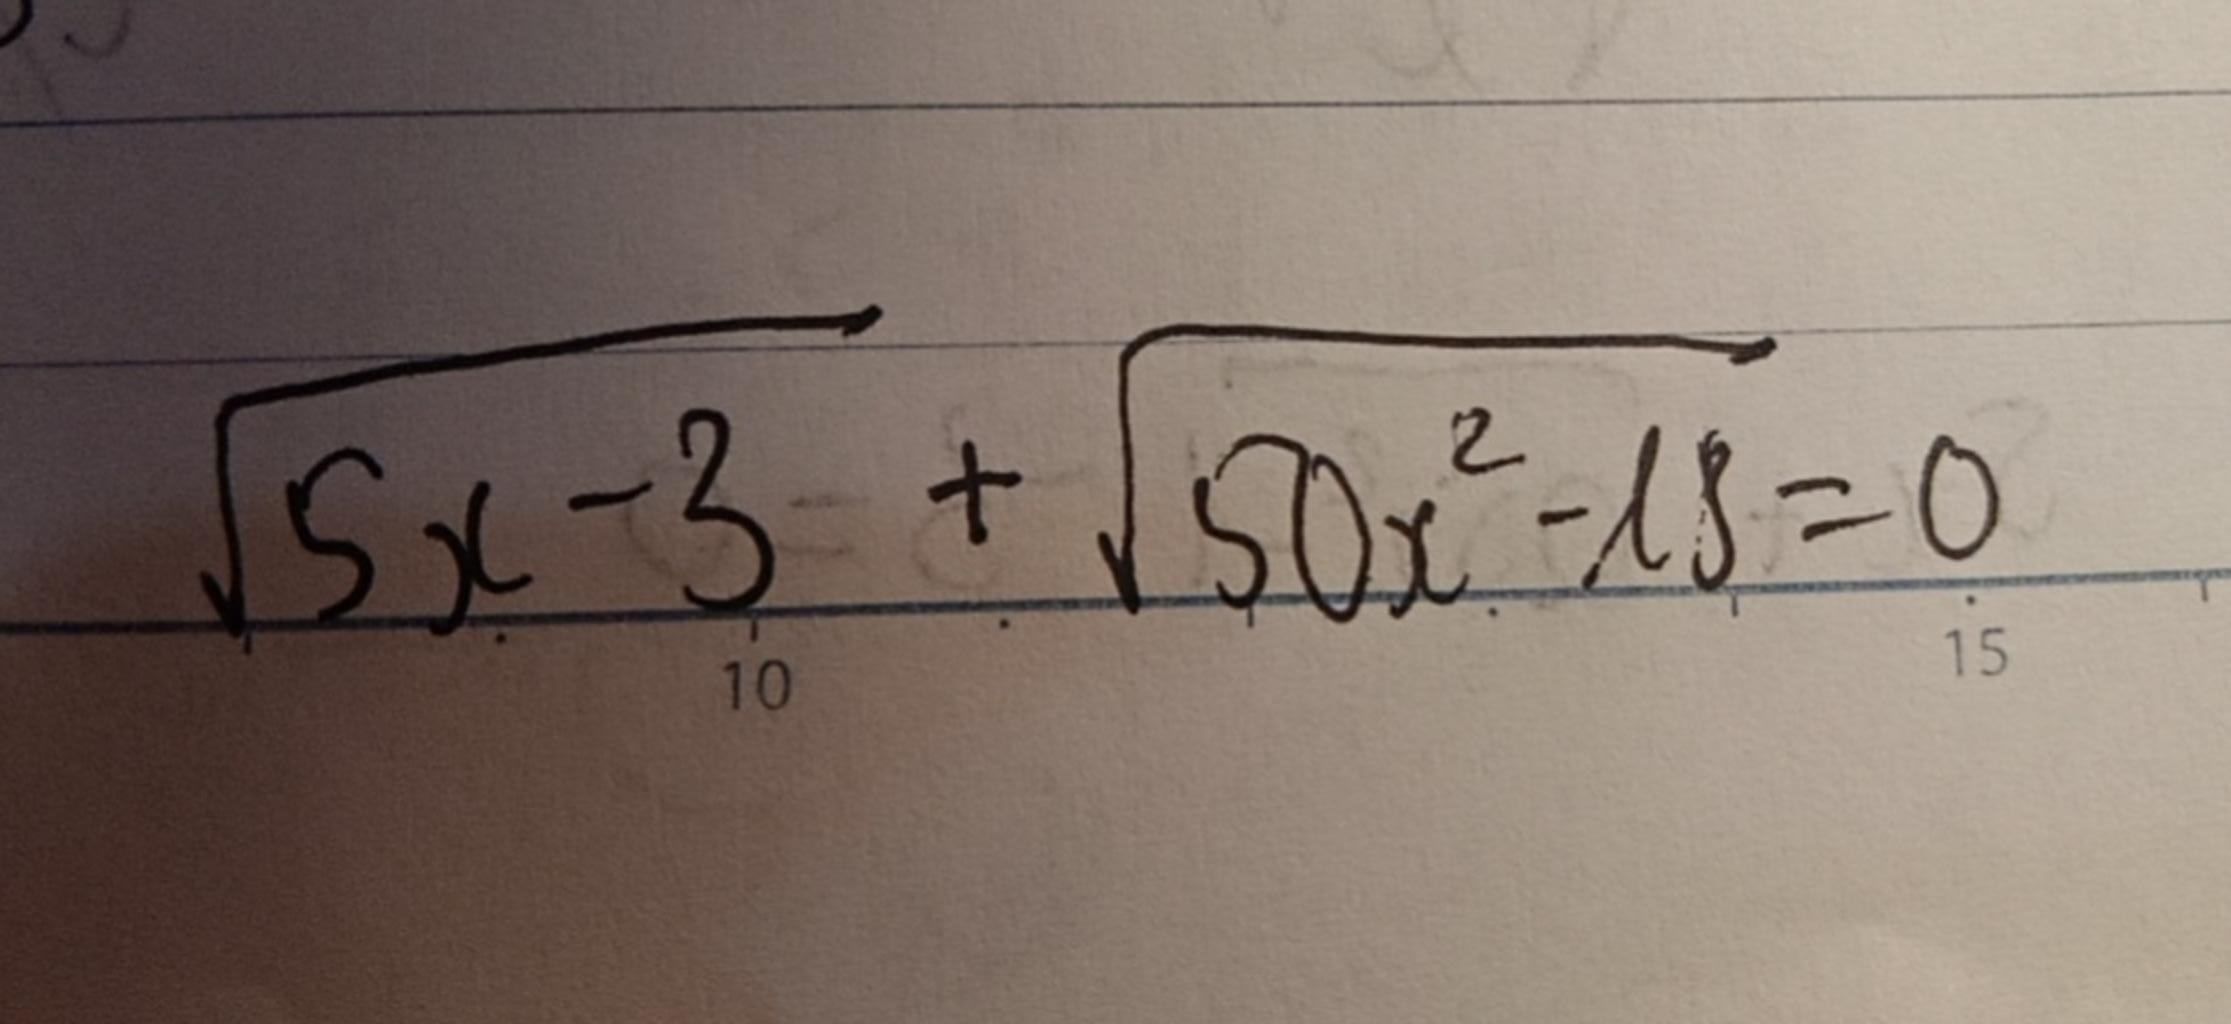 √(5x - 3) + √(50x² - 18) = 0
10 15